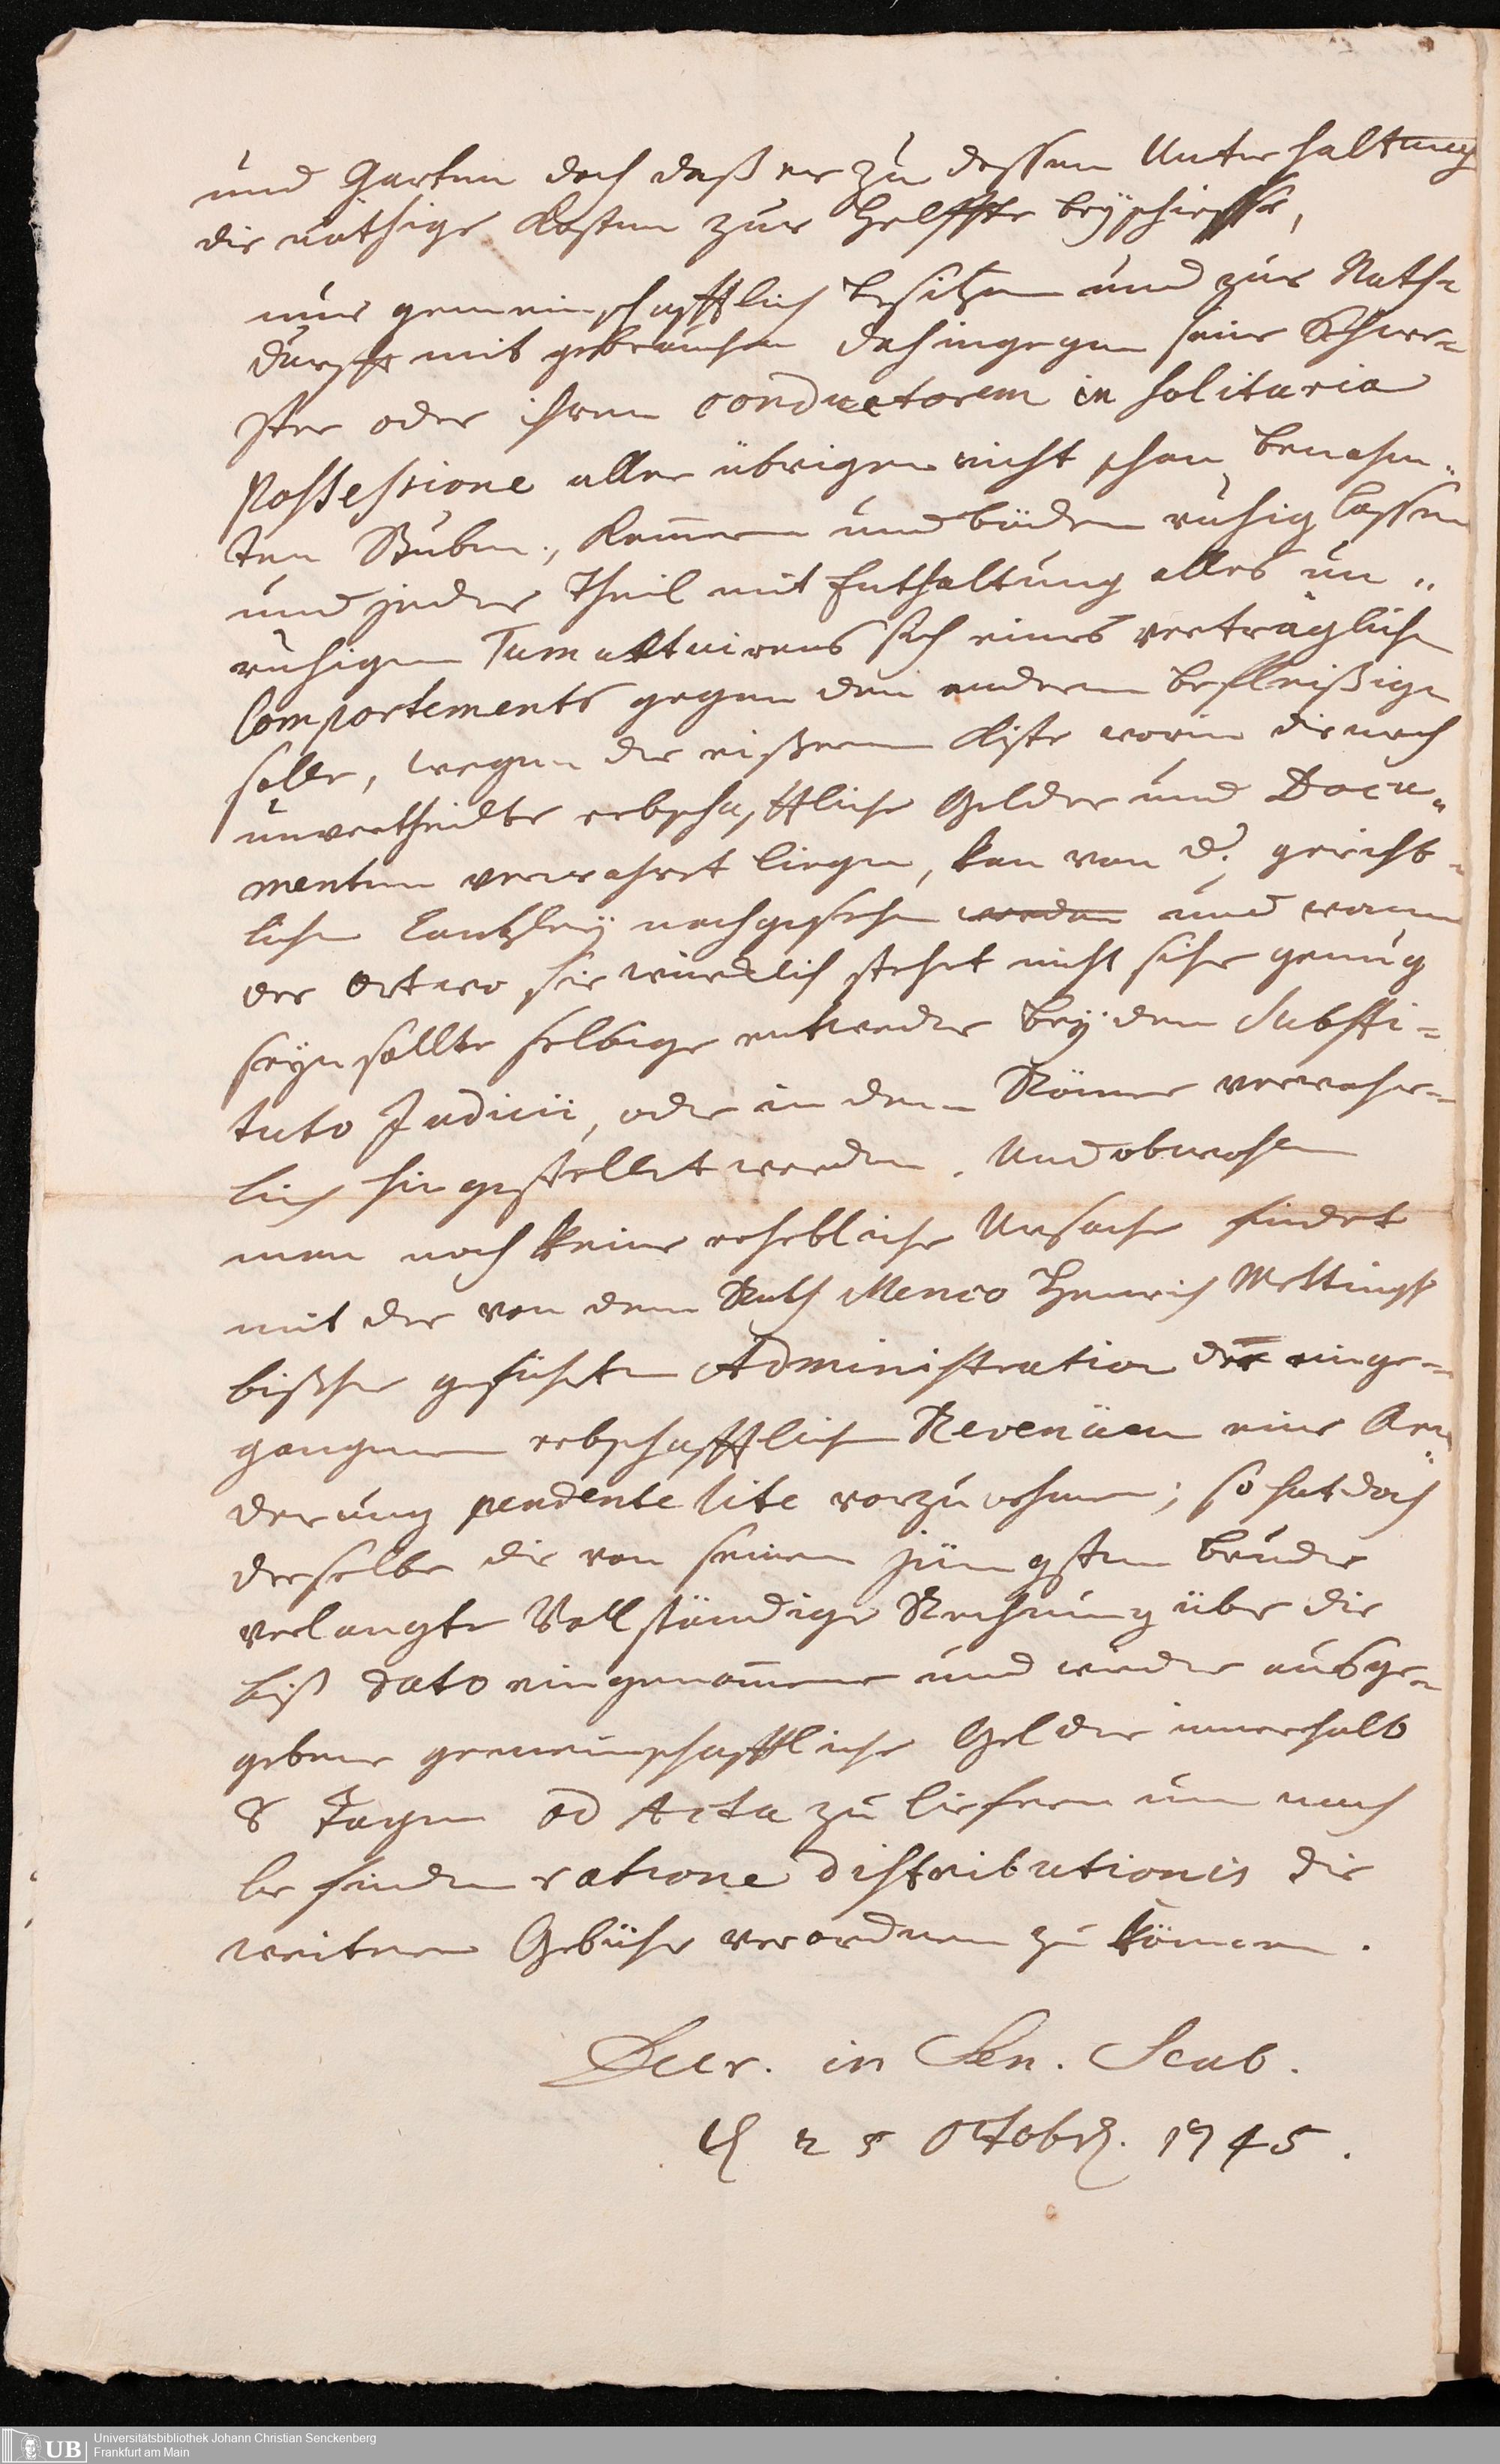 und Garten doch daß er zu dessen Unterhaltung
die nöthige Kosten zur Helffte beyschiesse,
nur gemeinschafftlich besitzen und zur Noth-
durfft mit gebrauchen dahingegen seine Schwe-
ster oder ihren conductorem in solitaria
Possessione aller übrigen nicht schon benahm„
ten Stuben, Kam̄ern und böden ruhig lassen
und jeder Theil mit Enthaltung alles un„
ruhigen Tumultuirens sich eines verträglichen
Comportements gegen den anderen befleißigen
solle, wegen der eißernen Kiste worin die noch
unvertheilte erbschafftliche Gelder und Docu„
menten verwahret liegen, kan von d. gericht-
lichen Cantzley nachgesehen werden und wann
der Ort wo sie würcklich stehet nicht sicher genug
seyn sollte selbige entweder bey dem Substi-
tuto Judicii, oder in dem Römer verwahr-
lich hingestellet werden. Und obwohlen
man noch keine erhebliche Ursache findet
mit der von dem Rath Menco Henrich Mettingh
bißher geführten Administration der einge-
gangenen erbschafftlichen Revenüen eine Aen„
derung pendente lite vorzunehmen; so hat doch
derselbe die von seinem jüngsten bruder
verlangte Vollständige Rechnung über die
biß dato eingenom̄ene und wieder ausge-
gebene gemeinschafftliche Gelder innerhalb
8 Tagen ad Acta zu liefern um nach
befinden ratione distributionis die
weitere Gebühr verordnen zu können.
Decr. in Sen. Scab.
d 25 Octobr. 1745.
UB
Universitätsbibliothek Johann Christian Senckenberg
Frankfurt am Main